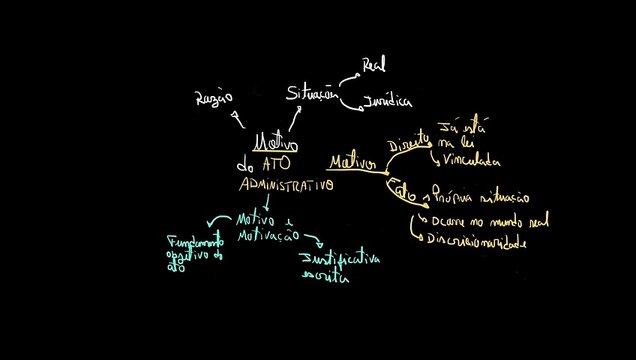 Real
Situação
Razão
Jurídica
Motivo
do ATO
ADMINISTRATIVO
Motivos
Direito
Já está
na lei
Vinculada
Fato
Própria situação
Ocorre no mundo real
Discricionariedade
Motivo e
Motivação
Fundamento
objetivo do
ato
Justificativa
escrita